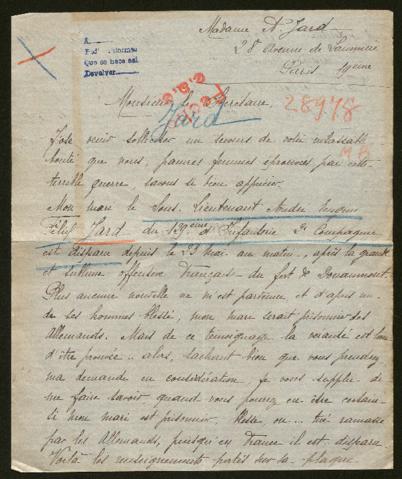 Madame A. Jard
28 Avenue de Saumur
Paris
A
Que se hace sal
Devolver
Monsieur le Secrétaire,
28978
Jard
J'ose venir solliciter un secours de votre
bonté que nous, pauvres femmes éprouvées par cette
terrible guerre, savons si bien apprécier.
Mon mari le Sous-Lieutenant André
Jard du 129ème d'Infanterie Compagnie
est disparu depuis le 23 Mai au matin, après la grande
et sublime offensive Française du fort de Douaumont
Plus aucune nouvelle ne m'est parvenue et d'après un
de ses hommes blessé, mon mari serait prisonnier des
Allemands. Mais de ce témoignage la véracité est loin
d'être prouvée.. alors, sachant bien que vous prendrez
ma demande en considération, je vous supplie de
me faire savoir quand vous pourrez en être certain
si mon mari est prisonnier, blessé, ou... tué ramassé
par les Allemands, puisqu'en France il est disparu
Voilà les renseignements portés sur sa plaque